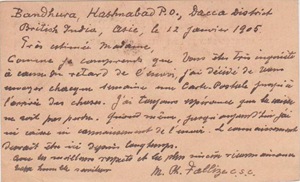 Bandhura, Hashnabad P.O., Dacca District
British India, Asie, le 12 Janvier 1905.
Très estimée Madame,
Comme je comprends que Vous êtes très inquiète
à cause du retard de l'envoi, j'ai décidé de vous
envoyer chaque semaine une Carte-Postale jusqu'à
l'arrivée des choses. J'ai toujours espérance que la caisse
ne soit pas perdue. Quand même, jusqu'aujourd'hui j'ai
ni caisse ni connaissement de l'envoi. Le connaissement
devrait être ici depuis longtemps.
Avec les meilleurs respects et la plus sincère reconnaissance
votre humble serviteur
M. Ch. Fallize c.s.c.